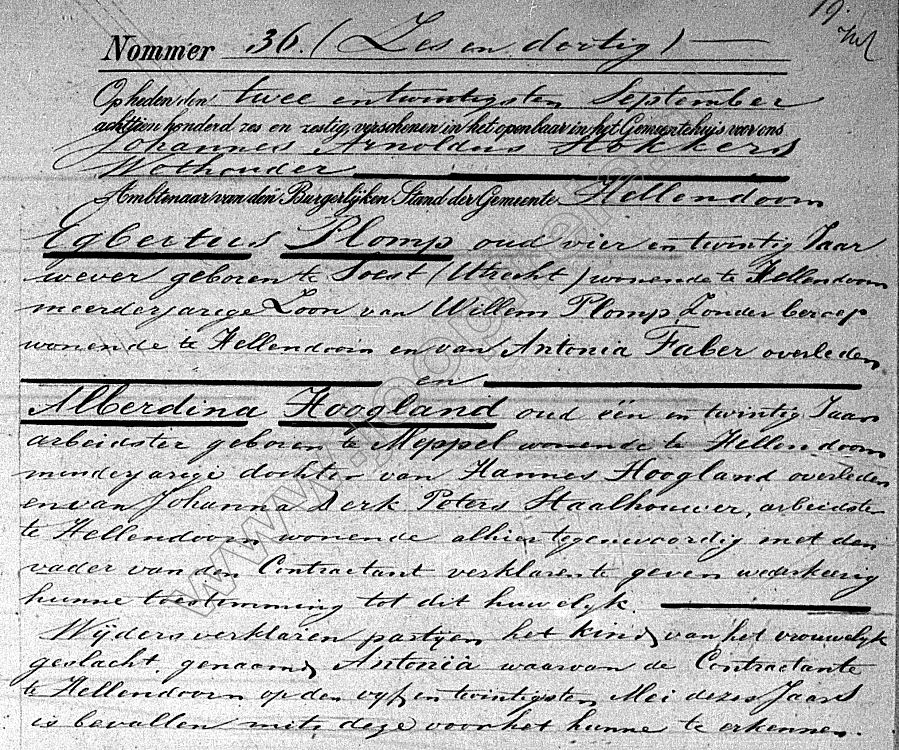 19.
Nommer 36. (Zes en dertig)
Op heden den twee en twintigsten September
achttien honderd zes en zestig, verschenen in het openbaar in het Gemeentehuis voor ons
Johannes Arnoldus Hokkers
Wethouder
Ambtenaar van den Burgerlijken Stand der Gemeente Hellendoorn
Egbertus Plomp oud vier en twintig Jaar
wever geboren te Soest (Utrecht) wonende te Hellendoorn
meerderjarige Zoon van Willem Plomp, Zonder beroep
wonende te Hellendoorn en van Antonia Faber overleden
en
Alberdina Hoogland oud één en twintig Jaar
arbeidster geboren te Meppel wonende te Hellendoorn
minderjarige dochter van Hannes Hoogland overleden
en van Johanna Derk Peters Staalhouwer, arbeidster
te Hellendoorn wonende alhier tegenwoordig met den
vader van den Contractant verklarente geven wederkeerig
hunne toestemming tot dit huwelyk.
Wijders verklaren partyen het kind van het vrouwelyk
geslacht, genaamd Antonia waarvan de Contractante
te Hellendoorn op den vyf en twintigsten Mei dezes Jaars
is bevallen mits deze voor het hunne te erkennen.